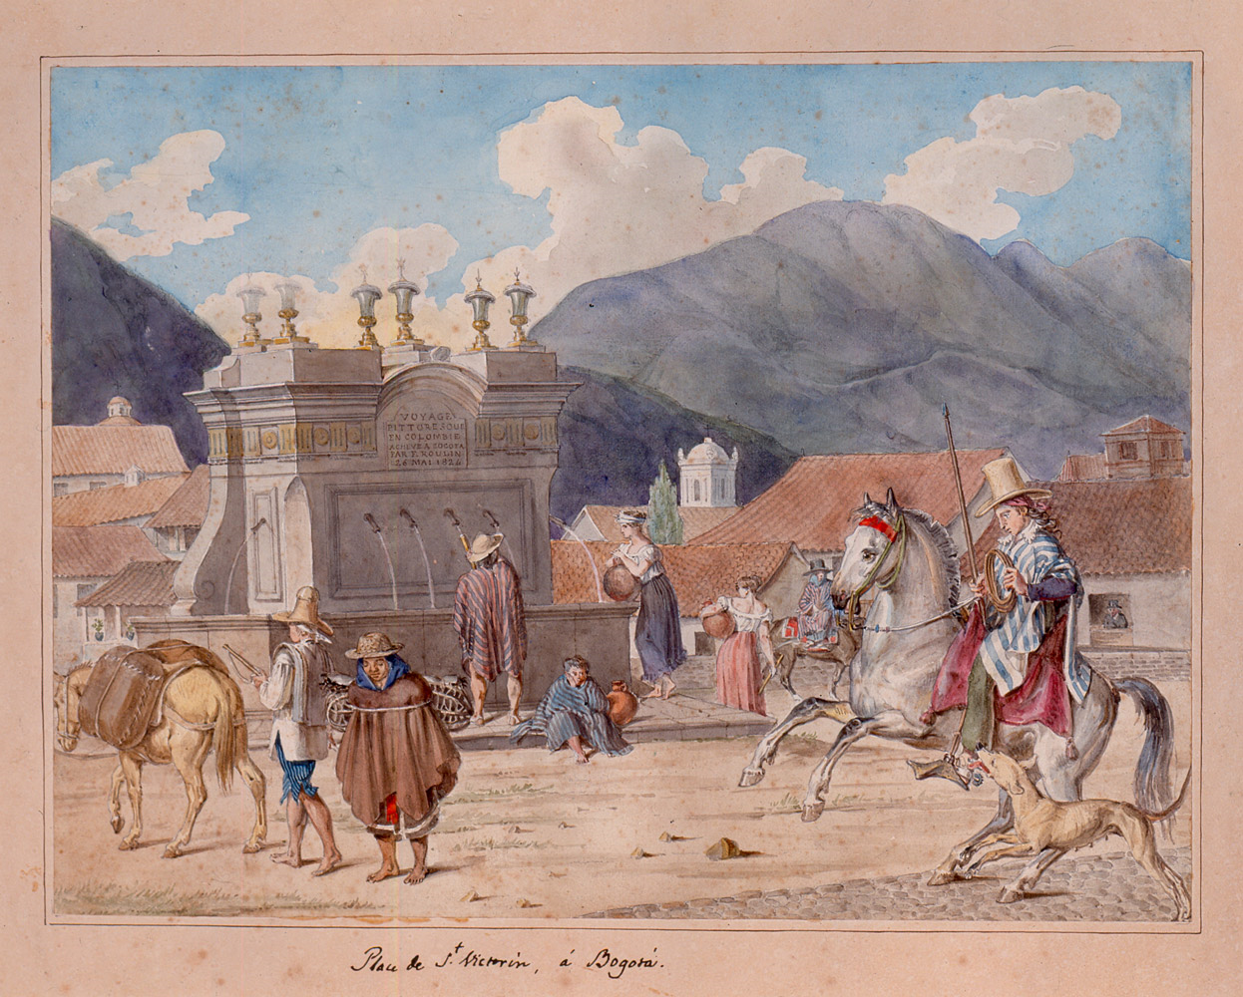 VOYAGE
PITTORESQUE
EN COLOMBIE
ACHEVÉ A BOGOTA
PAR F. ROULIN
26 MAI 1824
Place de S.t Victorin, á Bogotá.